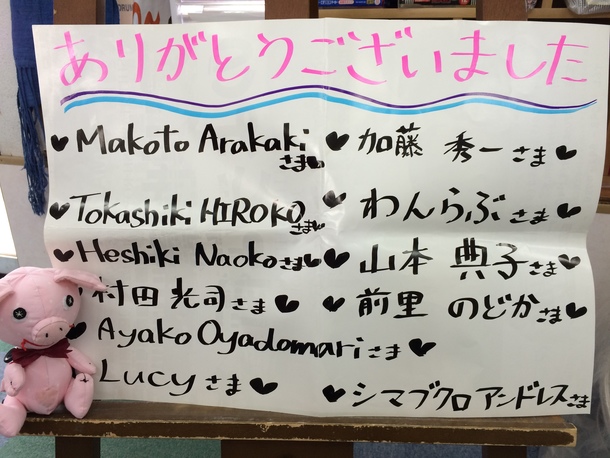 ありがとうございました
Makoto Arakaki さま
加藤 秀一 さま
Tokashiki HIROKO さま
わんらぶ さま
Heshiki Naoko さま
山本 典子 さま
村田 光司 さま
前里 のどか さま
Ayako Oyadomari さま
Lucy さま
シマブクロ アンドレス さま